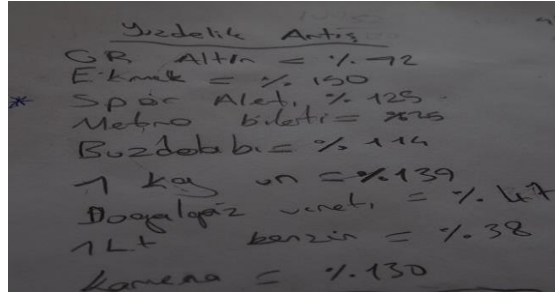 Yüzdelik Artış
GR Altın = % 72
Ekmek = % 150
* Spor Aleti % 125
Metro bileti = %25
Buzdolabı = % 114
1 kg un = %139
Doğalgaz ücreti = % 47
1 Lt benzin = % 38
Kamera = % 130